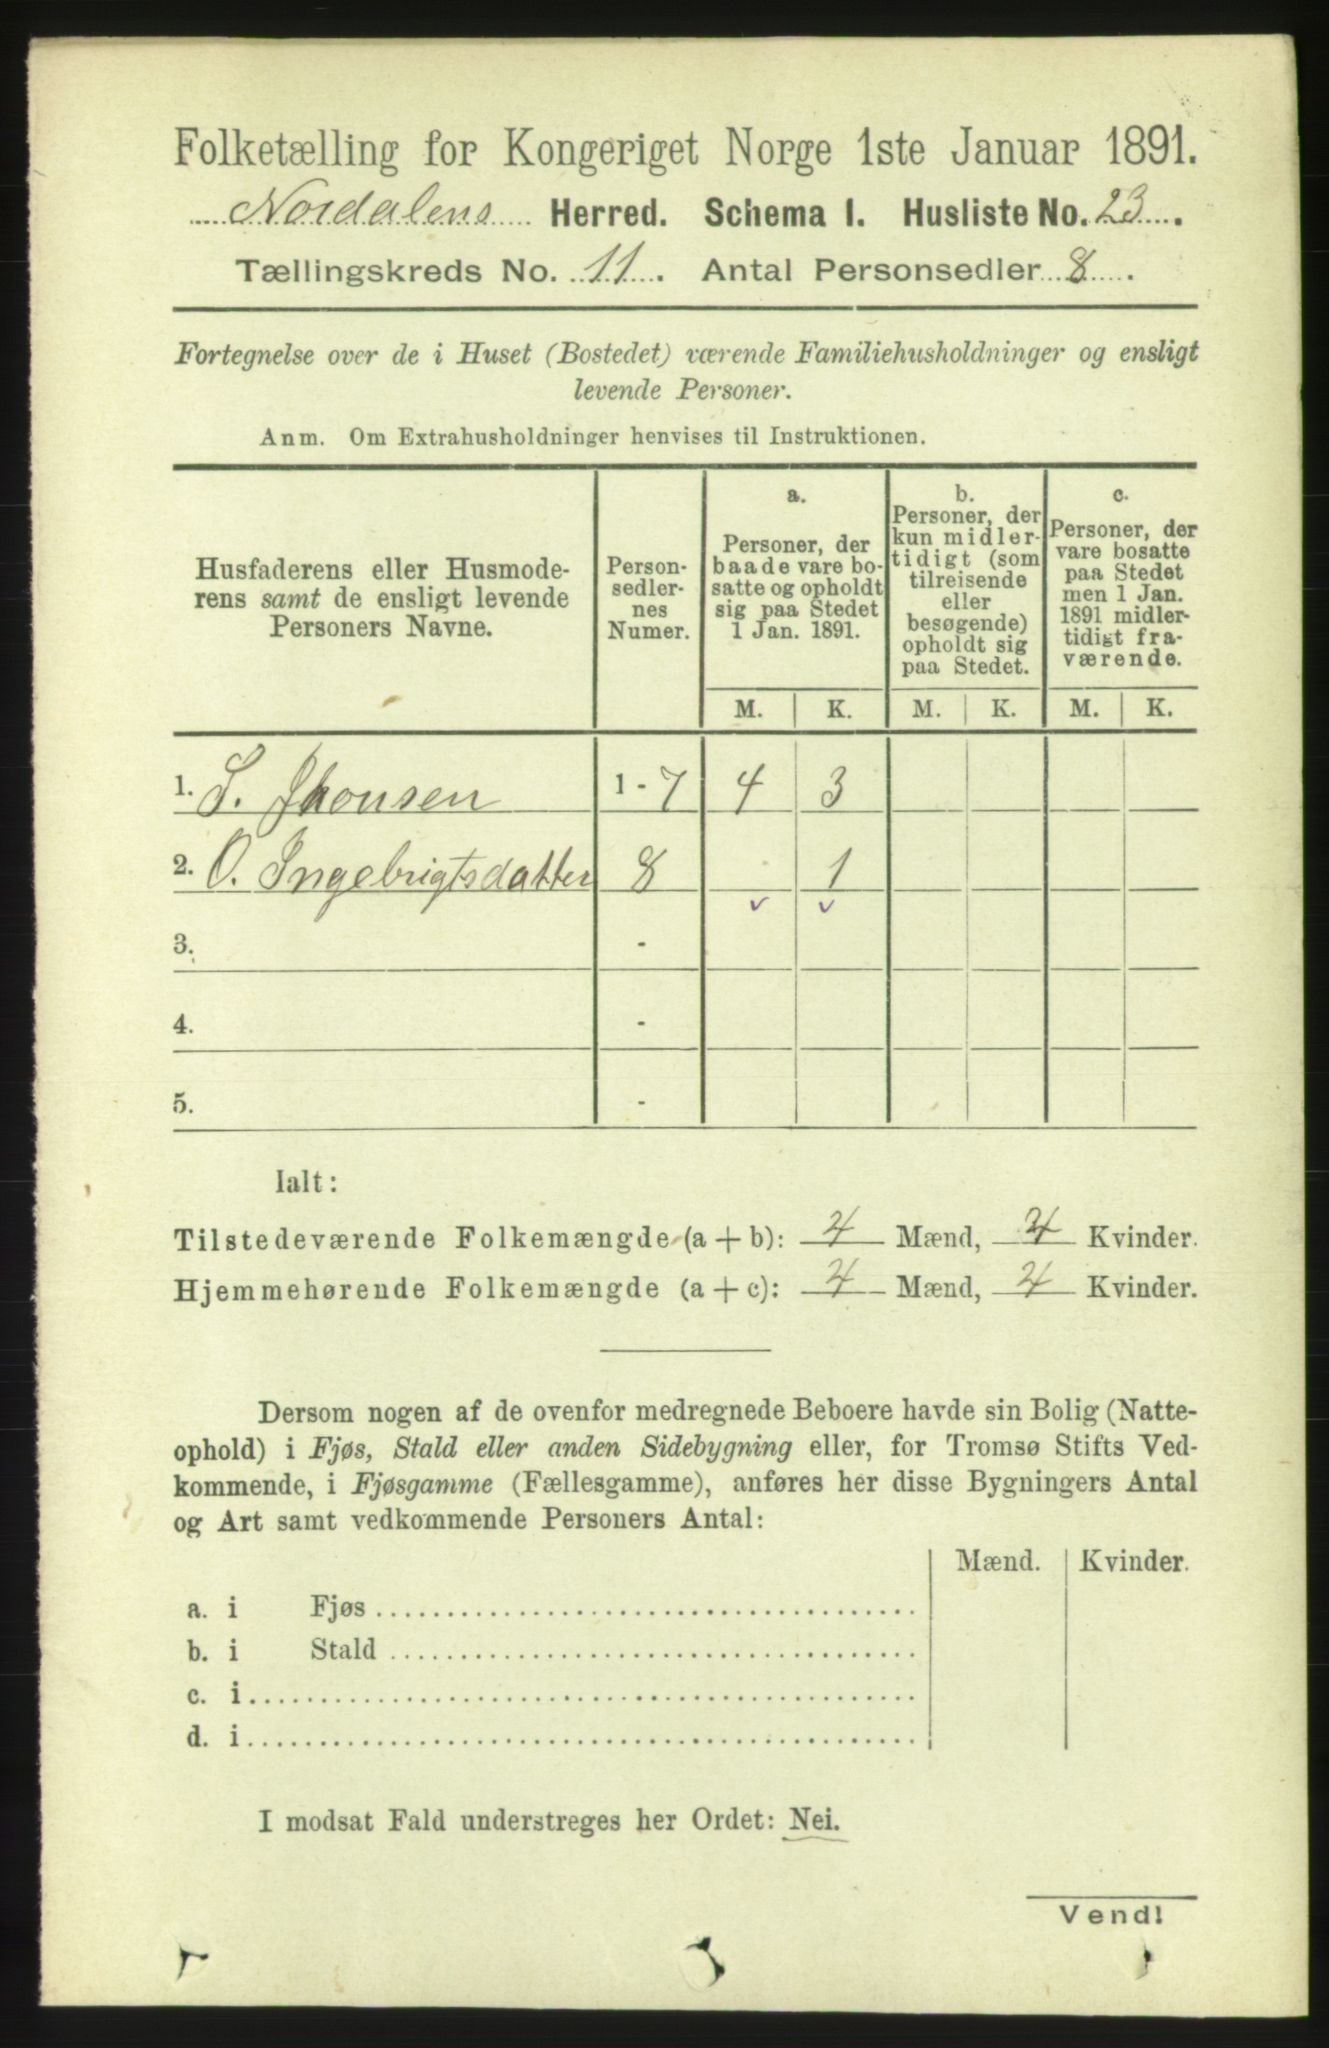 Folketælling for Kongeriget Norge 1ste Januar 1891.
Nordalens Herred. Schema I. Husliste No. 23.
Tællingskreds No. 11. Antal Personsedler 8.
Fortegnelse over de i Huset (Bostedet) værende Familiehusholdninger og ensligt
levende Personer.
Anm. Om Extrahusholdninger henvises til Instruktionen.
Husfaderens eller Husmode-
rens samt de ensligt levende
Personers Navne.
Person-
sedler-
nes
Numer.
a.
Personer, der
baade vare bo-
satte og opholdt
sig paa Stedet
1 Jan. 1891.
b.
Personer, der
kun midler-
tidigt (som
tilreisende
eller
besøgende)
opholdt sig
paa Stedet.
c.
Personer, der
vare bosatte
paa Stedet
men 1 Jan.
1891 midler-
tidigt fra-
værende.
M. K. M. K. M. K.
1. S. Jhonsen 1 - 7 4 3
2. O. Ingebrigtsdatter 8 - 1
3. -
4. -
5. -
Ialt:
Tilstedeværende Folkemængde (a + b): 4 Mænd, 4 Kvinder.
Hjemmehørende Folkemængde (a + c): 4 Mænd, 4 Kvinder.
Dersom nogen af de ovenfor medregnede Beboere havde sin Bolig (Natte-
ophold) i Fjøs, Stald eller anden Sidebygning eller, for Tromsø Stifts Ved-
kommende, i Fjøsgamme (Fællesgamme), anføres her disse Bygningers Antal
og Art samt vedkommende Personers Antal:
Mænd. Kvinder.
a. i Fjøs
b. i Stald
c. i
d. i
I modsat Fald understreges her Ordet: Nei.
Vend!